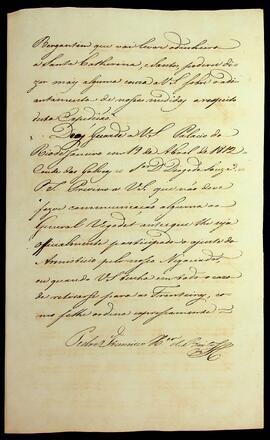 Bergantim que vai levar o dinheiro
a Santa Catherina, e Santos, poderei di-
zer mais alguma cousa a VS sobre o adi-
antamento de nossas medidas a respeito
desta Expedição.
Deos Guarde a VS Palacio do
Rio de Janeiro em 19 de Abril de 1812
Conde das Galveas Sr D Diogo de Souza
P.S. Previno a VS que não deve
fazer communicação alguma ao
General Vigodet antes que lhe seja
officialmente participado o ajuste do
Armisticio pelo nosso Negociador,
ou quando VS tenha em todo o caso
de retirarse para as Fronteiras, co-
mo se lhe ordena expressamente
Pedro Francisco